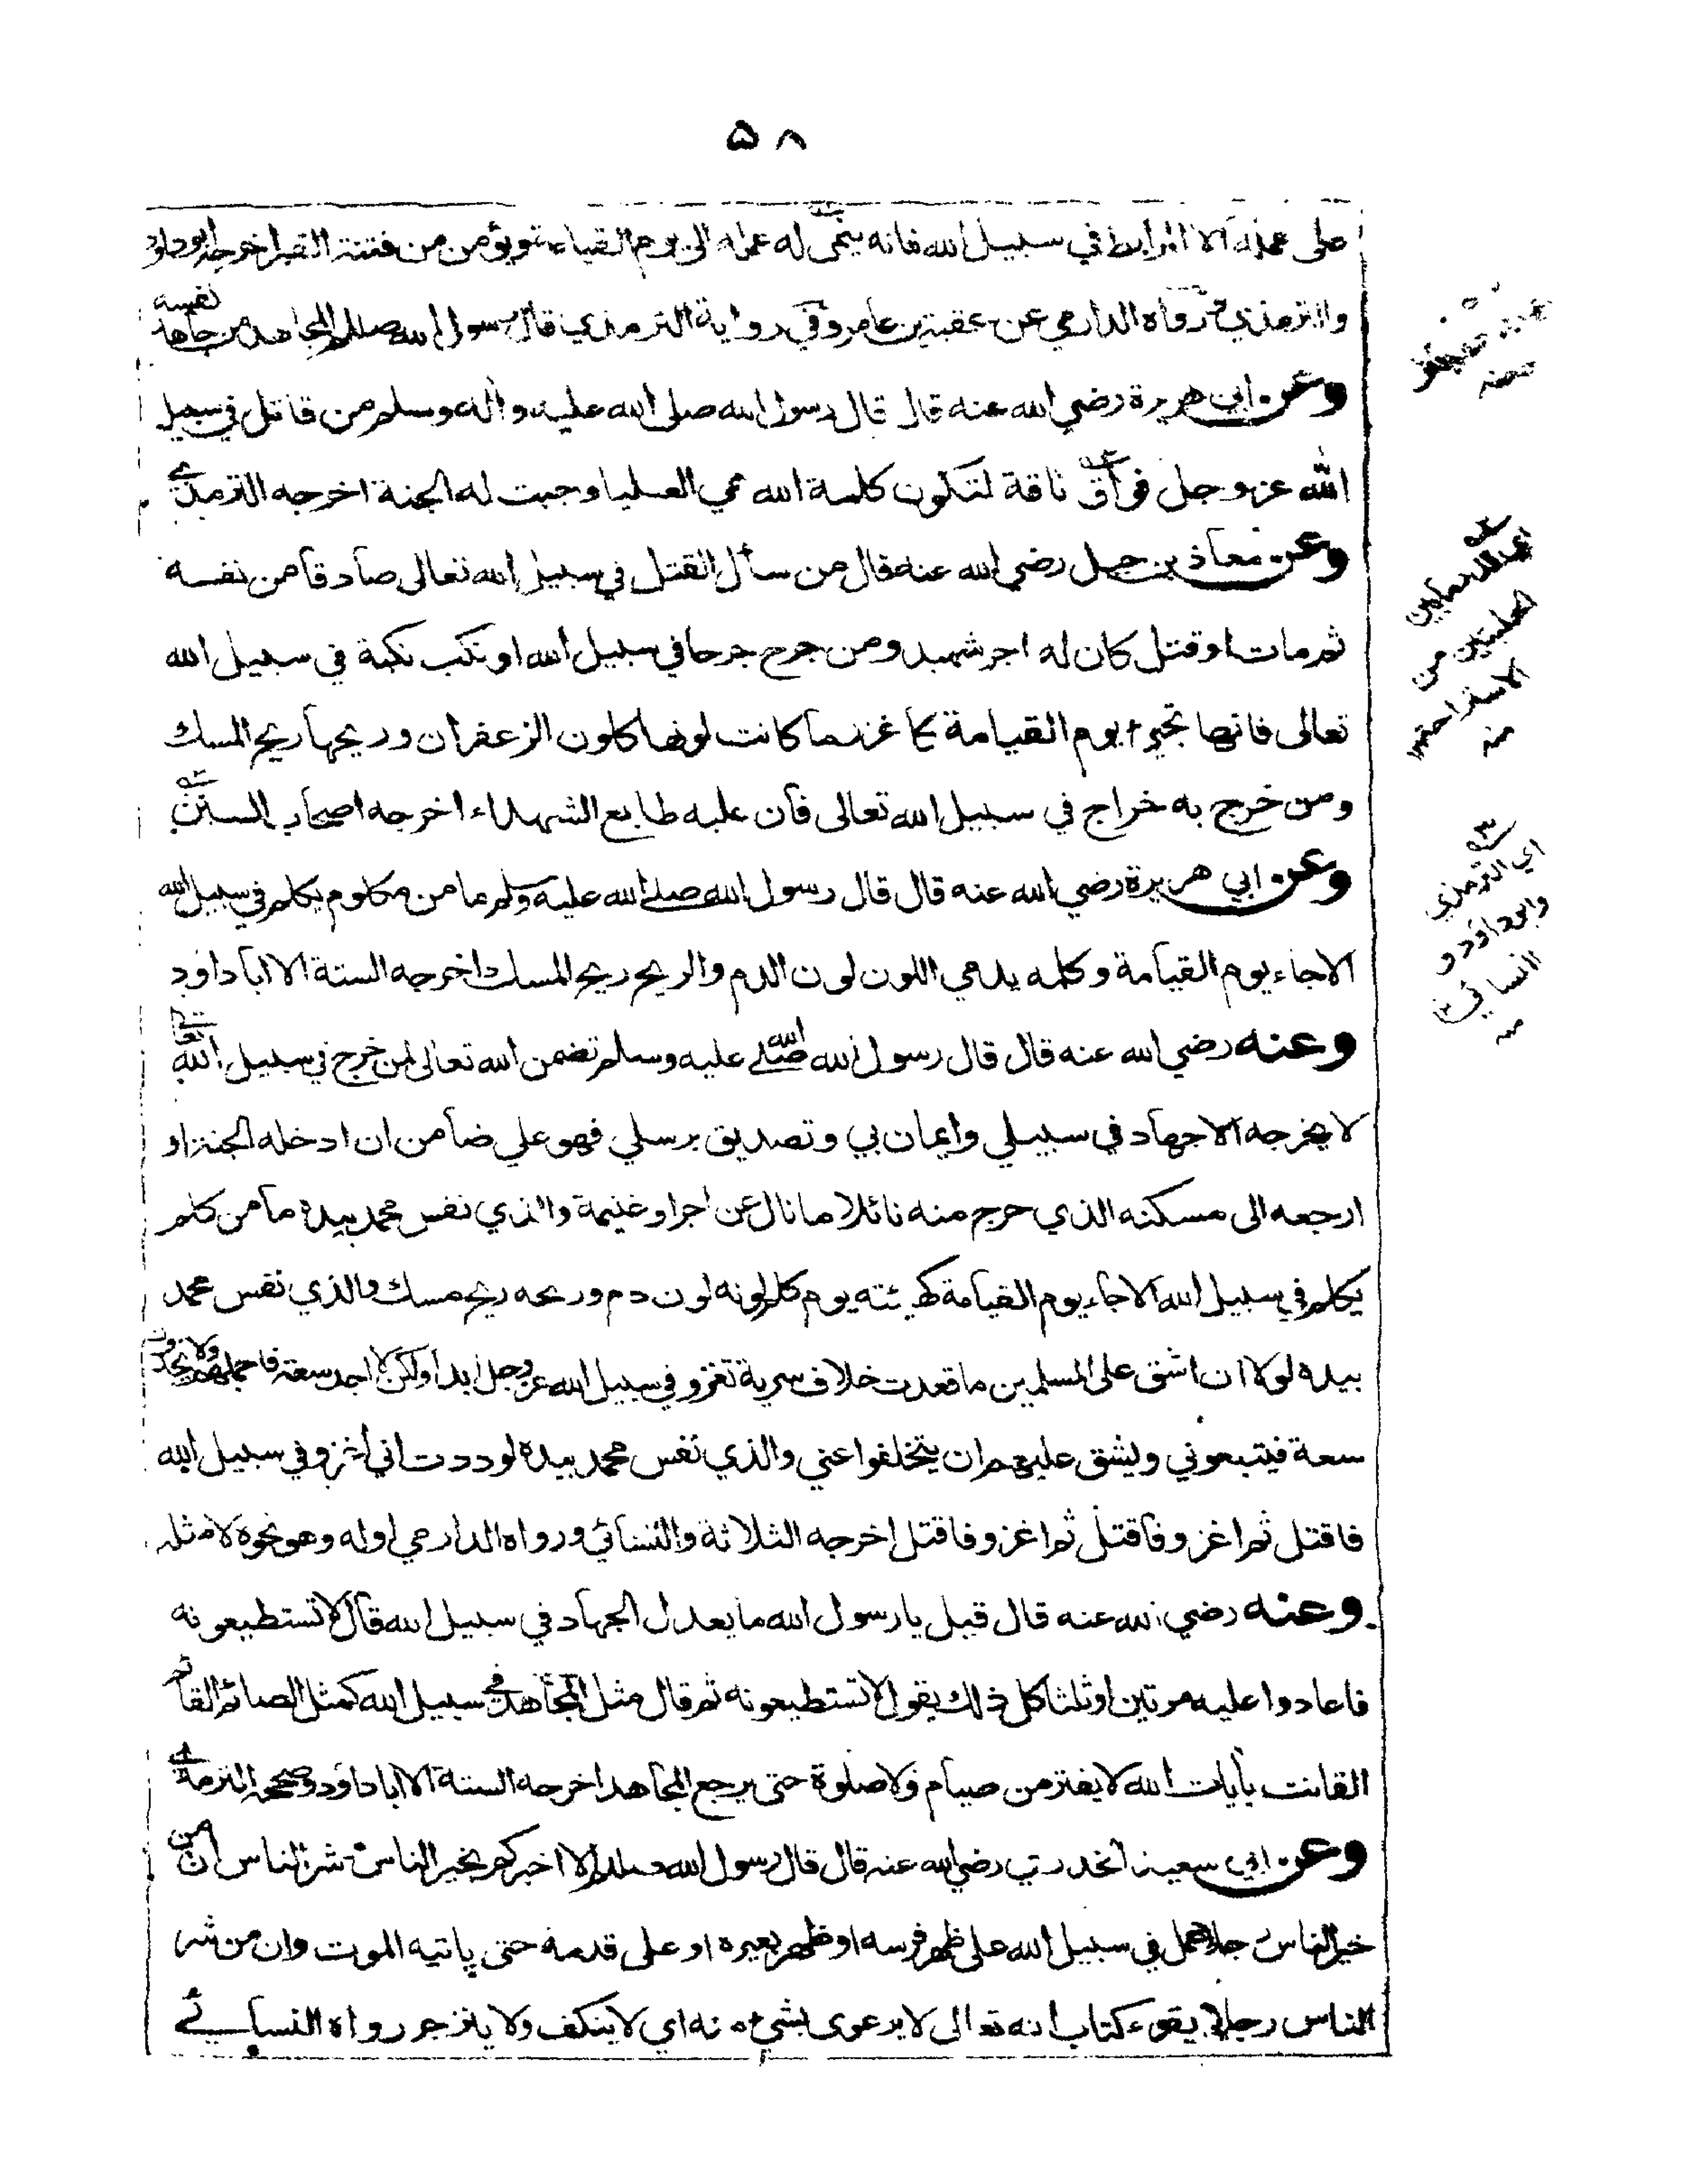 ٥٨
على عمله الا المرابط في سبيل الله فانه ينمى له عمله الى يوم القيامة ويؤمن من فتنة القبر اخرجه ابو داود
والترمذي ورواه الدارمي عن عقبة بن عامر وفي رواية الترمذي قال رسول الله صللم المجاهد من جاهد نفسه
وعن ابي هريرة رضي الله عنه قال قال رسول الله صلى الله عليه واله وسلم من قاتل في سبيل
الله عزوجل فواق ناقة لتكون كلمة الله هي العليا وجبت له الجنة اخرجه الترمذي
وعن معاذ بن جبل رضي الله عنه قال من سأل القتل في سبيل الله تعالى صادقا من نفسه
ثم مات او قتل كان له اجر شهيد ومن جرح جرحا في سبيل الله او نكب نكبة في سبيل الله
تعالى فانها تجيء يوم القيامة كاغزر ما كانت لونها كلون الزعفران وريحها ريح المسك
ومن خرج به خراج في سبيل الله تعالى فان عليه طابع الشهداء اخرجه اصحاب السنن
وعن ابي هريرة رضي الله عنه قال قال رسول الله صلے الله عليه وسلم ما من مكلوم يكلم في سبيل الله
الا جاء يوم القيامة وكلمه يدمي اللون لون الدم والريح ريح المسك اخرجه الستة الا ابا داود
وعنه رضي الله عنه قال قال رسول الله صلے الله عليه وسلم تضمن الله تعالى لمن خرج في سبيل الله تعالى
لا يخرجه الا جهاد في سبيلي وايمان بي وتصديق برسلي فهو علي ضامن ان ادخله الجنة او
ارجعه الى مسكنه الذي خرج منه نائلا ما نال عن اجر او غنيمة والذي نفس محمد بيده ما من كلم
يكلم في سبيل الله الا جاء يوم القيامة كهيئته يوم كلم لونه لون دم وريحه ريح مسك والذي نفس محمد
بيده لولا ان اشق على المسلمين ما قعدت خلاف سرية تغزو في سبيل الله عزوجل ابدا ولكن لا اجد سعة فاحملهم ولا يجدون
سعة فيتبعوني ويشق عليهم ان يتخلفوا عني والذي نفس محمد بيده لوددت اني اغزو في سبيل الله
فاقتل ثم اغزو فاقتل ثم اغزو فاقتل اخرجه الثلاثة والنسائي ورواه الدارمي اوله وهو نحوه لا مثله
وعنه رضي الله عنه قال قيل يا رسول الله ما يعدل الجهاد في سبيل الله قال لا تستطيعونه
فاعادوا عليه مرتين او ثلثا كل ذلك يقول لا تستطيعونه ثم قال مثل المجاهد في سبيل الله كمثل الصائم القائم
القانت بأيات الله لا يفتر من صيام ولا صلوة حتى يرجع المجاهد اخرجه الستة الا ابا داود وصححه الترمذي
وعن ابي سعيد الخدري رضي الله عنه قال قال رسول الله صللم الا اخبركم بخير الناس وشر الناس ان من
خير الناس رجلا عمل في سبيل الله على ظهر فرسه او ظهر بعيره او على قدمه حتى ياتيه الموت وان من شر
الناس رجلا يقرء كتاب الله تعالى لا يرعوى بشيء منه اي لا ينكف ولا ينزجر رواه النسائے
اي
الحلبتين من
الاستراحة
منه
٣
اي الترمذي
وابوداود و
النسائي
منه